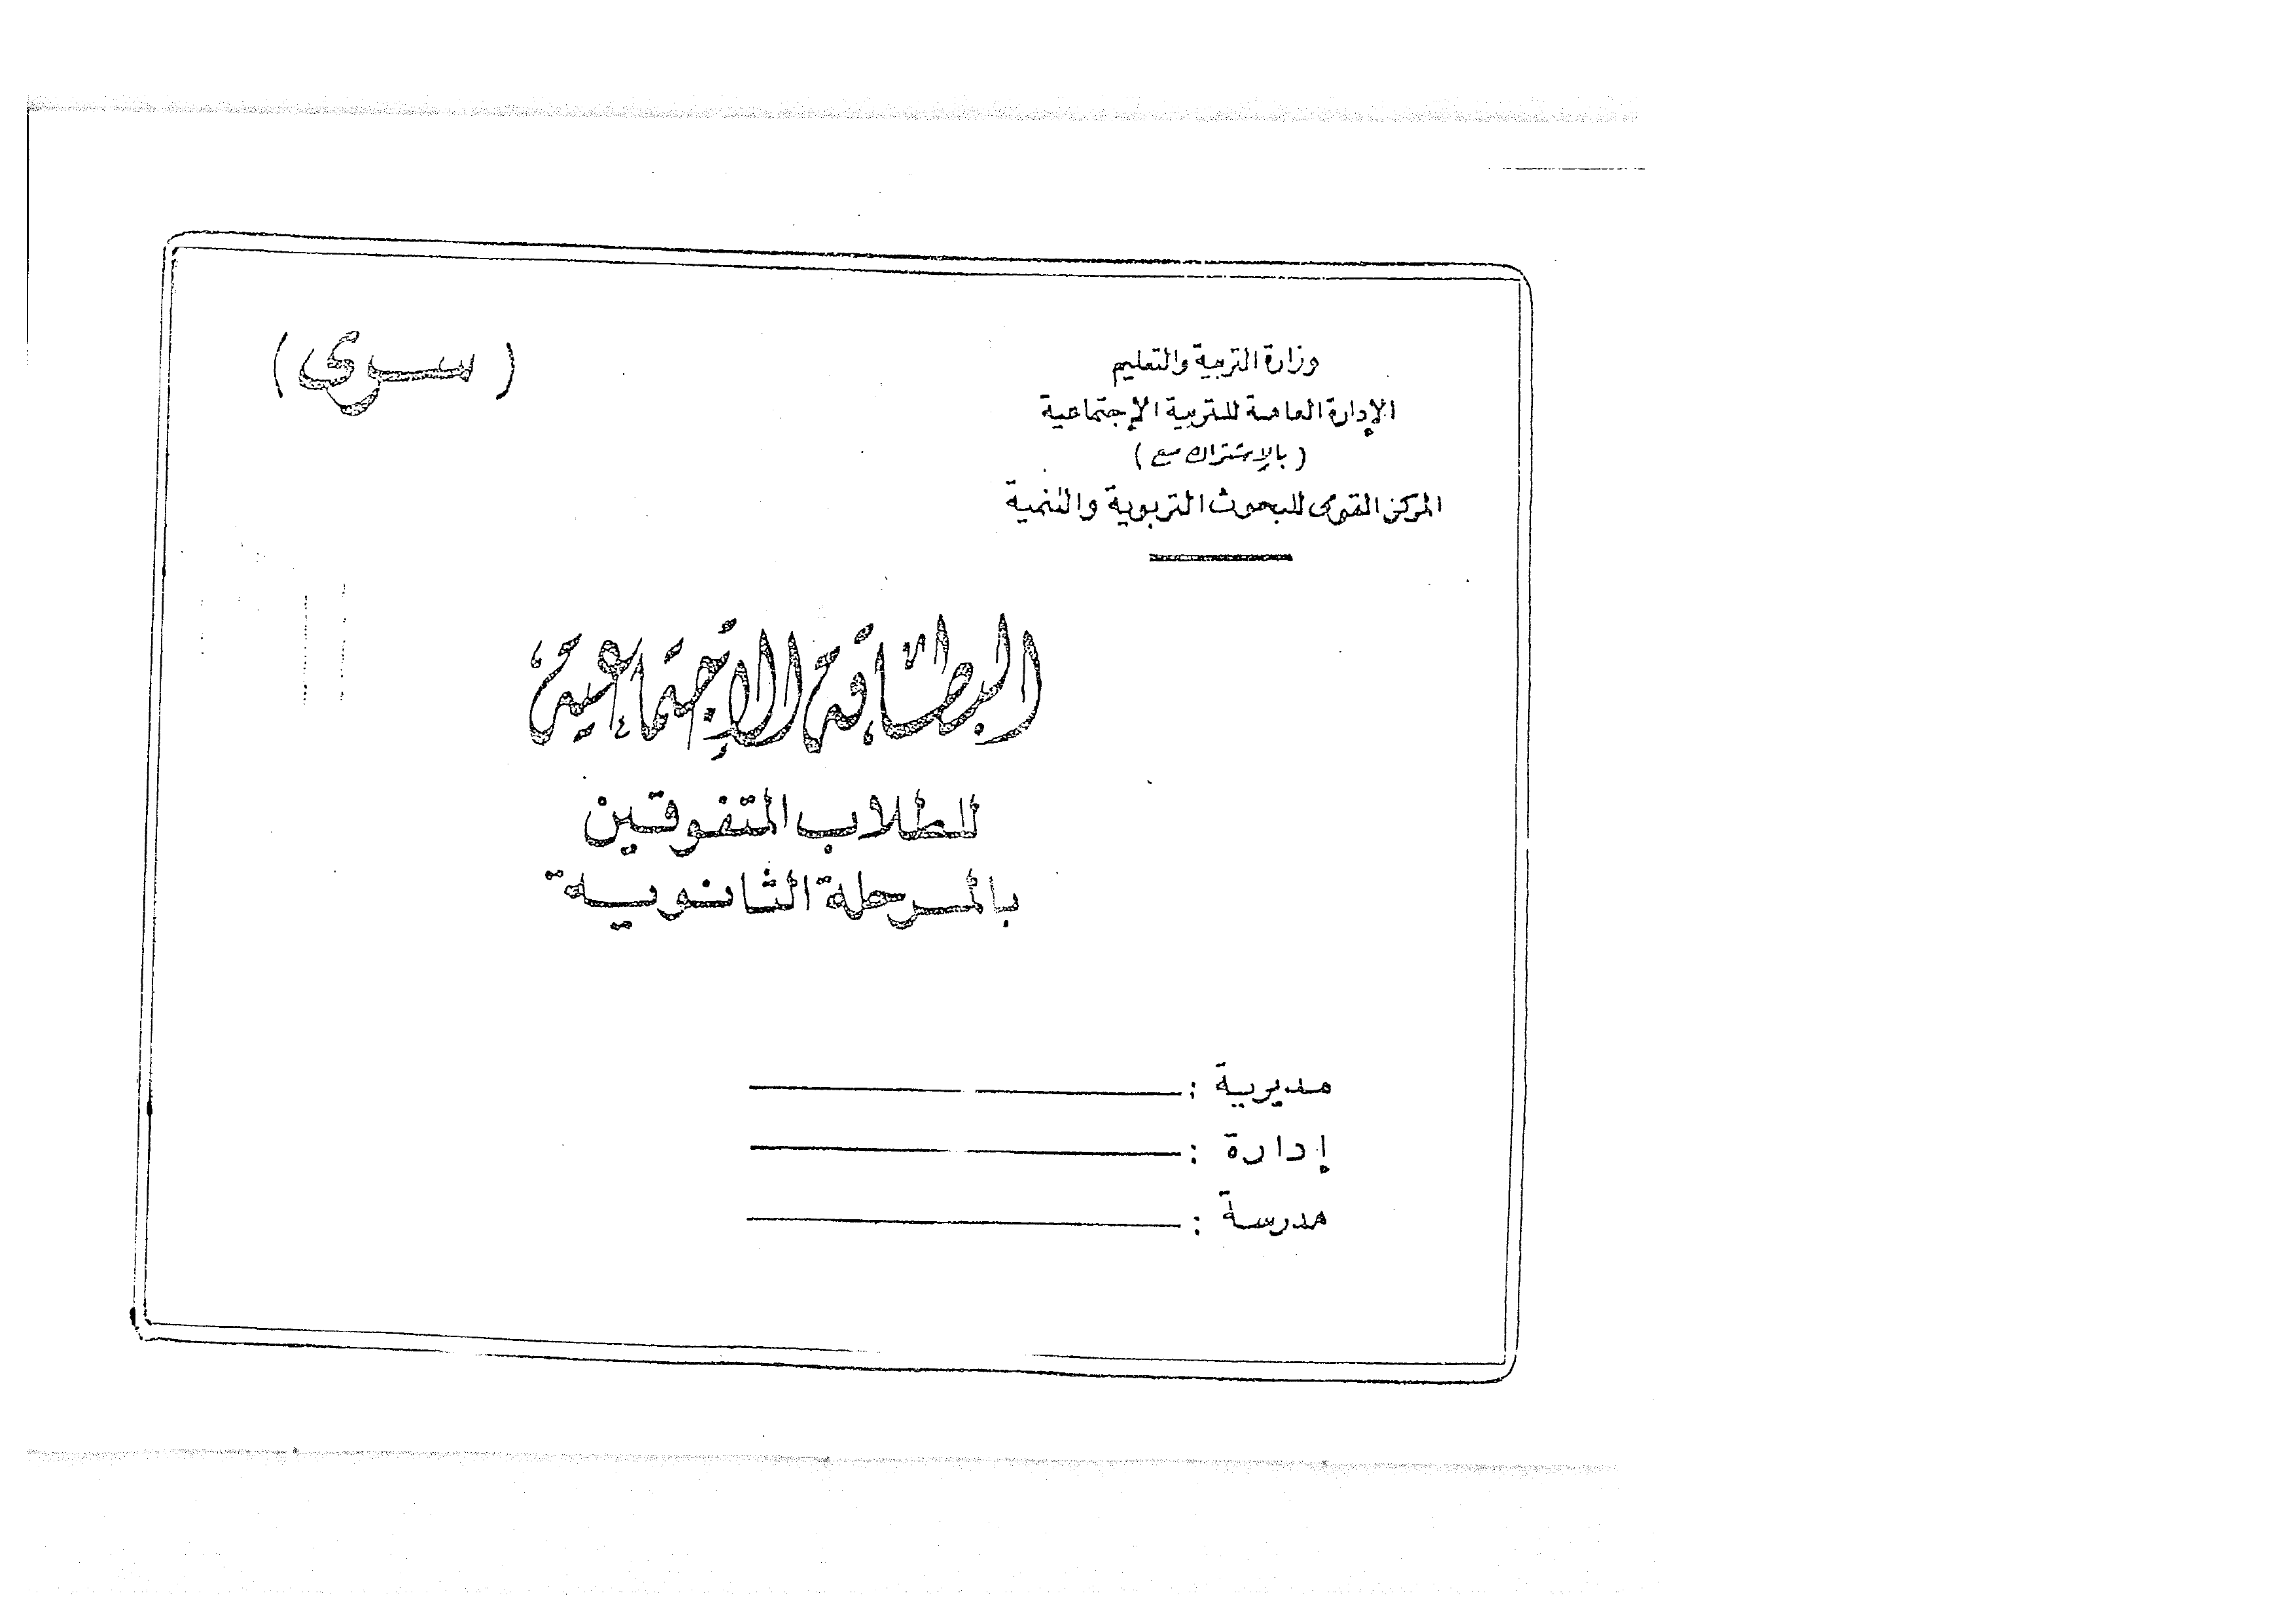 وزارة التربية والتعليم
الإدارة العامة للتربية الإجتماعية
(بالإشتراك مع)
المركز القومى للبحوث التربوية والتنمية
(سرى)
البطاقة الإجتماعية
للطلاب المتفوقين
بالمرحلة الثانوية
مديرية :
إدارة :
مدرسة :